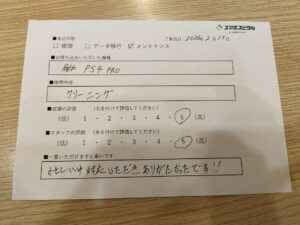 スマホスピタル
■来店内容
ご来店日: 2026年2月17日
□ 修理 □ データ移行 ☑ メンテナンス
■お持ち込みいただいた機種
PS4 PRO
■修理内容
クリーニング
■店頭の評価 (丸を付けて評価してください)
(低) 1 ・ 2 ・ 3 ・ 4 ・ 5 (高)
■スタッフの評価 (丸を付けて評価してください)
(低) 1 ・ 2 ・ 3 ・ 4 ・ 5 (高)
■一言いただけますと幸いです
忙しい中対応いただきありがたかったです!!